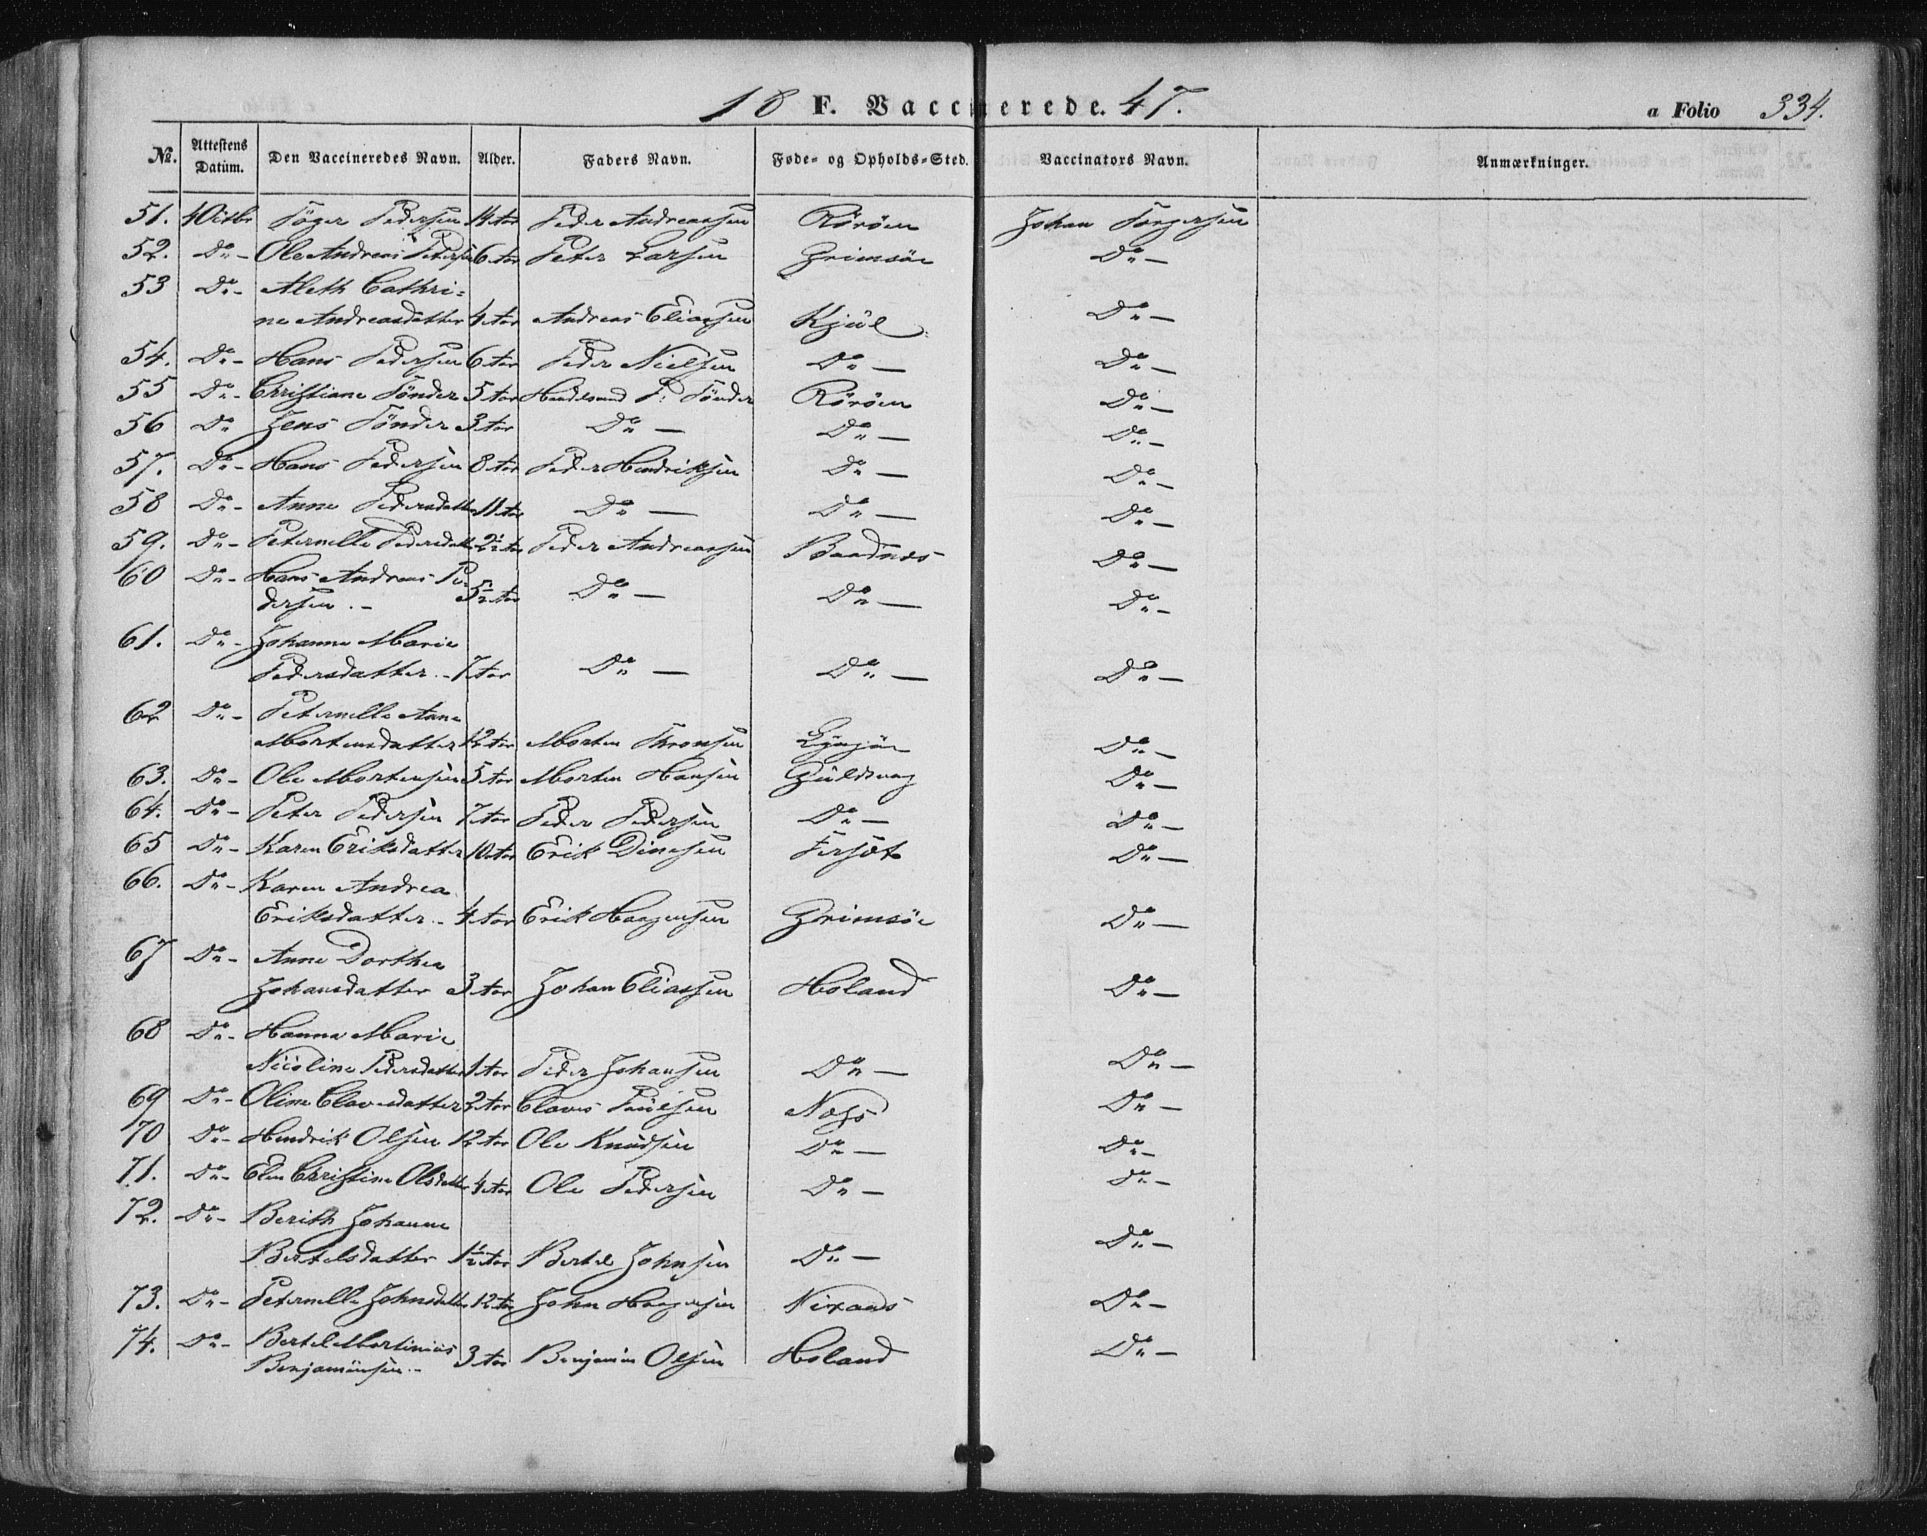 18 F. Vaccinerede. 47. a Folio 334.
No. Attestens Datum. Den Vaccineredes Navn. Alder. Faders Navn. Føde- og Opholds-Sted. Vaccinators Navn. Anmærkninger.
51. 4 Octbr Töger Pedersen Peder Andreassen Röröen Johan Torgersen
52. Do - Ole Andreas Petersen 6 Aar Peter Larsen Grimsöe Do -
53 Do - Aleth Cathri=
ne Andreasdatter 4 Aar Andreas Eliassen Kjül Do -
54. Do - Hans Pedersen 6 Aar Peder Nielsen Do - Do -
55 Do - Christiane Tönder 5 Aar Handelsmd P. Tönder Röröen Do -
56 Do Jens Tönder 3 Aar Do - Do - Do -
57. Do - Hans Pedersen 8 Aar Peder Hendriksen Do - Do -
58 Do - Anne Pedersdatter 11 Aar Do - Do - Do -
59. Do - Peternelle Pedersdatter 2½ Aar Peder Andreassen Baadnes Do -
60 Do - Hans Andreas Pe-
dersen. - 5½ Aar Do - Do - Do -
61. Do - Johanna Marie
Pedersdatter. - 7 Aar Do - Do - Do -
62 Do - Peternelle Anne
Mortensdatter 12 Aar Morten Thronsen Do -
63. Do - Ole Mortensen 5 Aar Morten Hansen Do -
64. Do - Peter Pedersen 7 Aar Peder Pedersen Do - Do -
65 Do - Karen Eriksdatter 10 Aar Erik Dinesen Do -
66. Do - Karen Andrea
Eriksdatter. - 4 Aar Erik Haagensen Grimsöe Do -
67 Do - Anne Dorthea
Johansdatter 3 Aar Johan Eliassen Holand Do -
68 Do - Hanna Marie
Nicoline Pedersdatter 1 Aar Peder Johansen Do - Do -
69 Do - Oline Clavesdatter 2 Aar Claves Paulsen Do -
70 Do - Hendrik Olsen 12 Aar Ole Knudsen Do - Do -
71. Do - Elen Christine Olsdatter 4 Aar Ole Pedersen Do - Do -
72. Do - Berith Johanne
Bertelsdatter 1½ Aar Bertel Johnsen Do - Do -
73. Do - Peternelle Johnsdatter 12 Aar John Haagensen Do -
74. Do - Bertel Martinius
Benjaminsen. - 3 Aar Benjamin Olsen Holand Do -